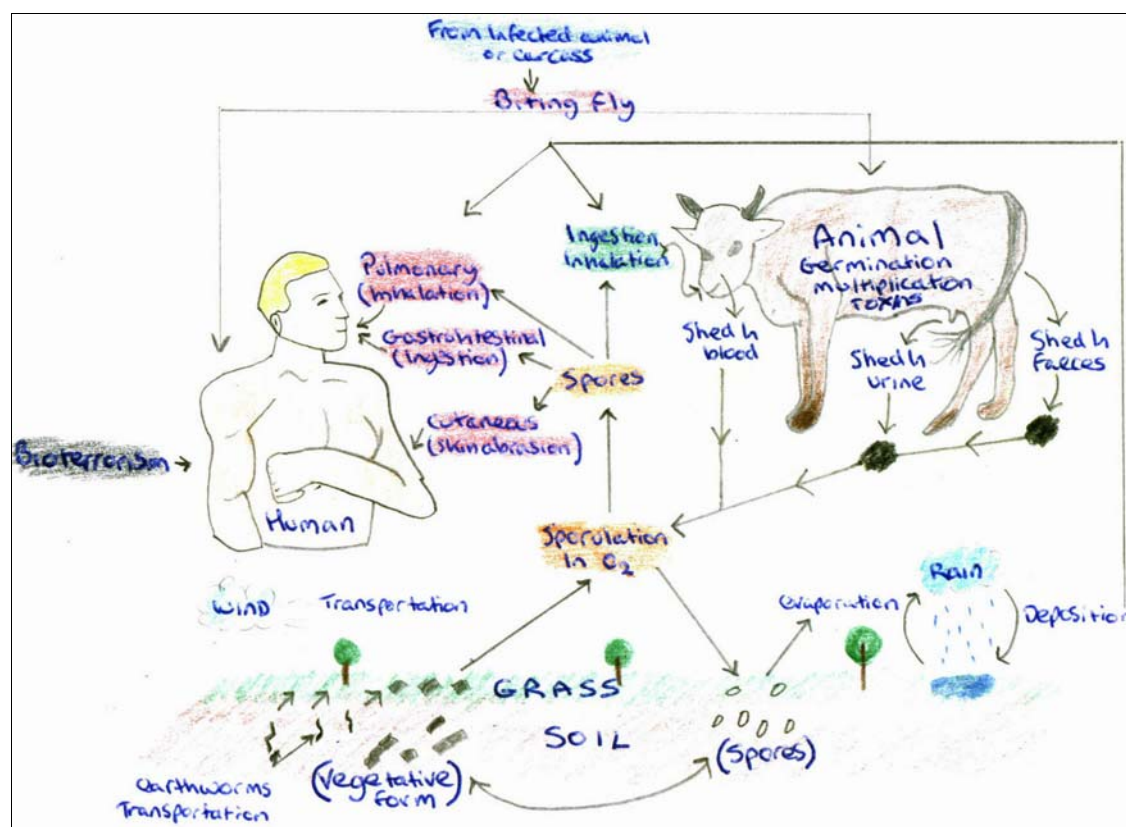 From infected animal
or carcass
Biting fly
Ingestion
Inhalation
Animal
Germination
multiplication
toxins
Pulmonary
(Inhalation)
Gastrointestinal
(Ingestion)
Spores
Cutaneous
(skin abrasion)
Shed in
blood
Shed in
urine
Shed in
faeces
Bioterrorism
Human
Sporulation
in O₂
Wind
Transportation
evaporation
Rain
Deposition
GRASS
SOIL
(Spores)
(Vegetative
form)
earthworms
Transportation